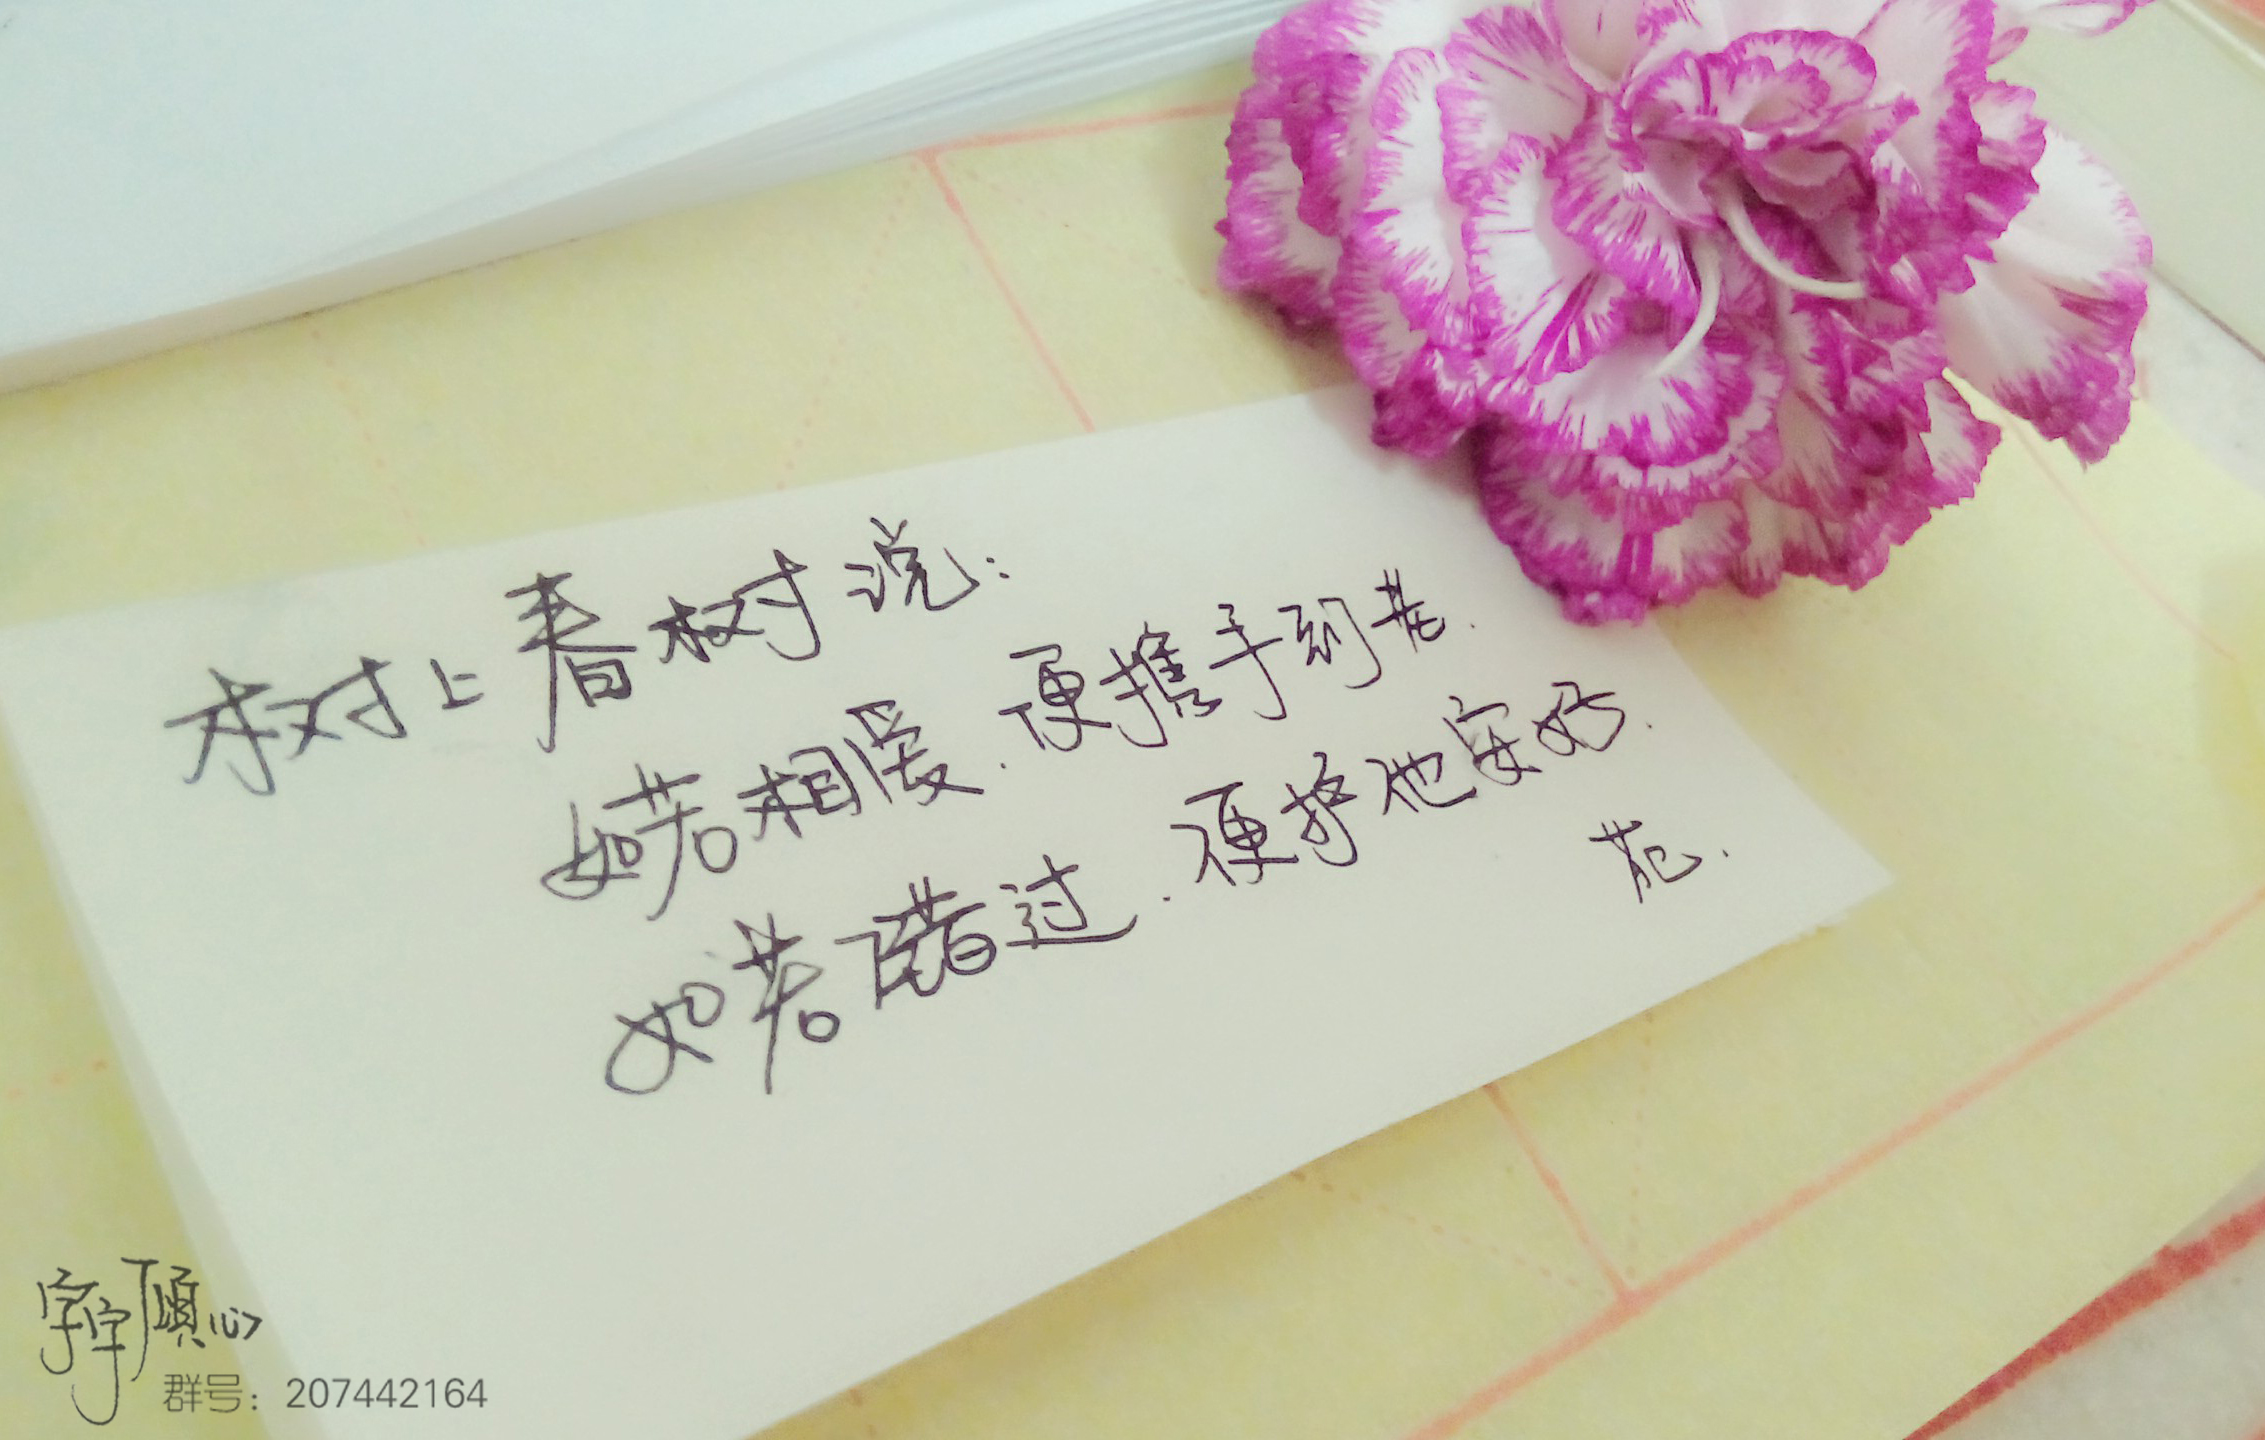 树上春树说：
如若相爱．便携手到老．
如若错过．便护他安好．
苑．
字字顾心
群号：207442164